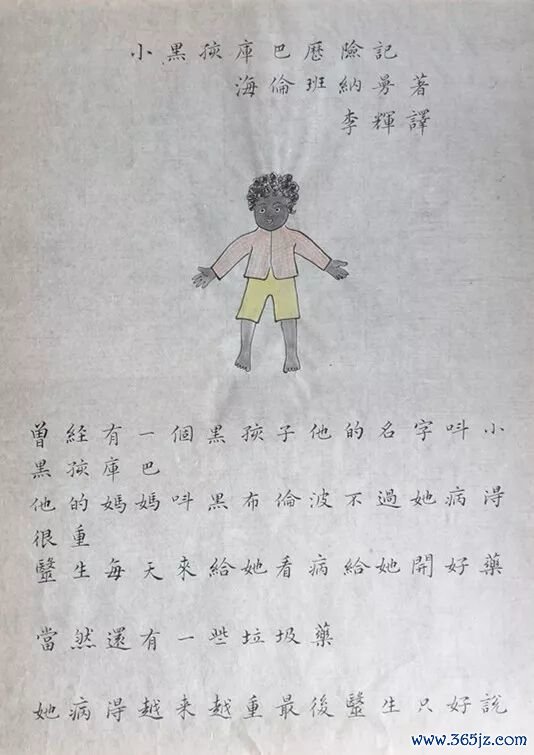 小黑孩庫巴歷險記
海倫班納曼著
李輝譯
曾経有一個黑孩子他的名字呌小
黑孩庫巴
他的媽媽呌黑布倫波不過她病得
很重
毉生每天來給她看病給她開好藥
當然還有一些垃圾藥
她病得越来越重最後毉生只好説
www.365jz.com